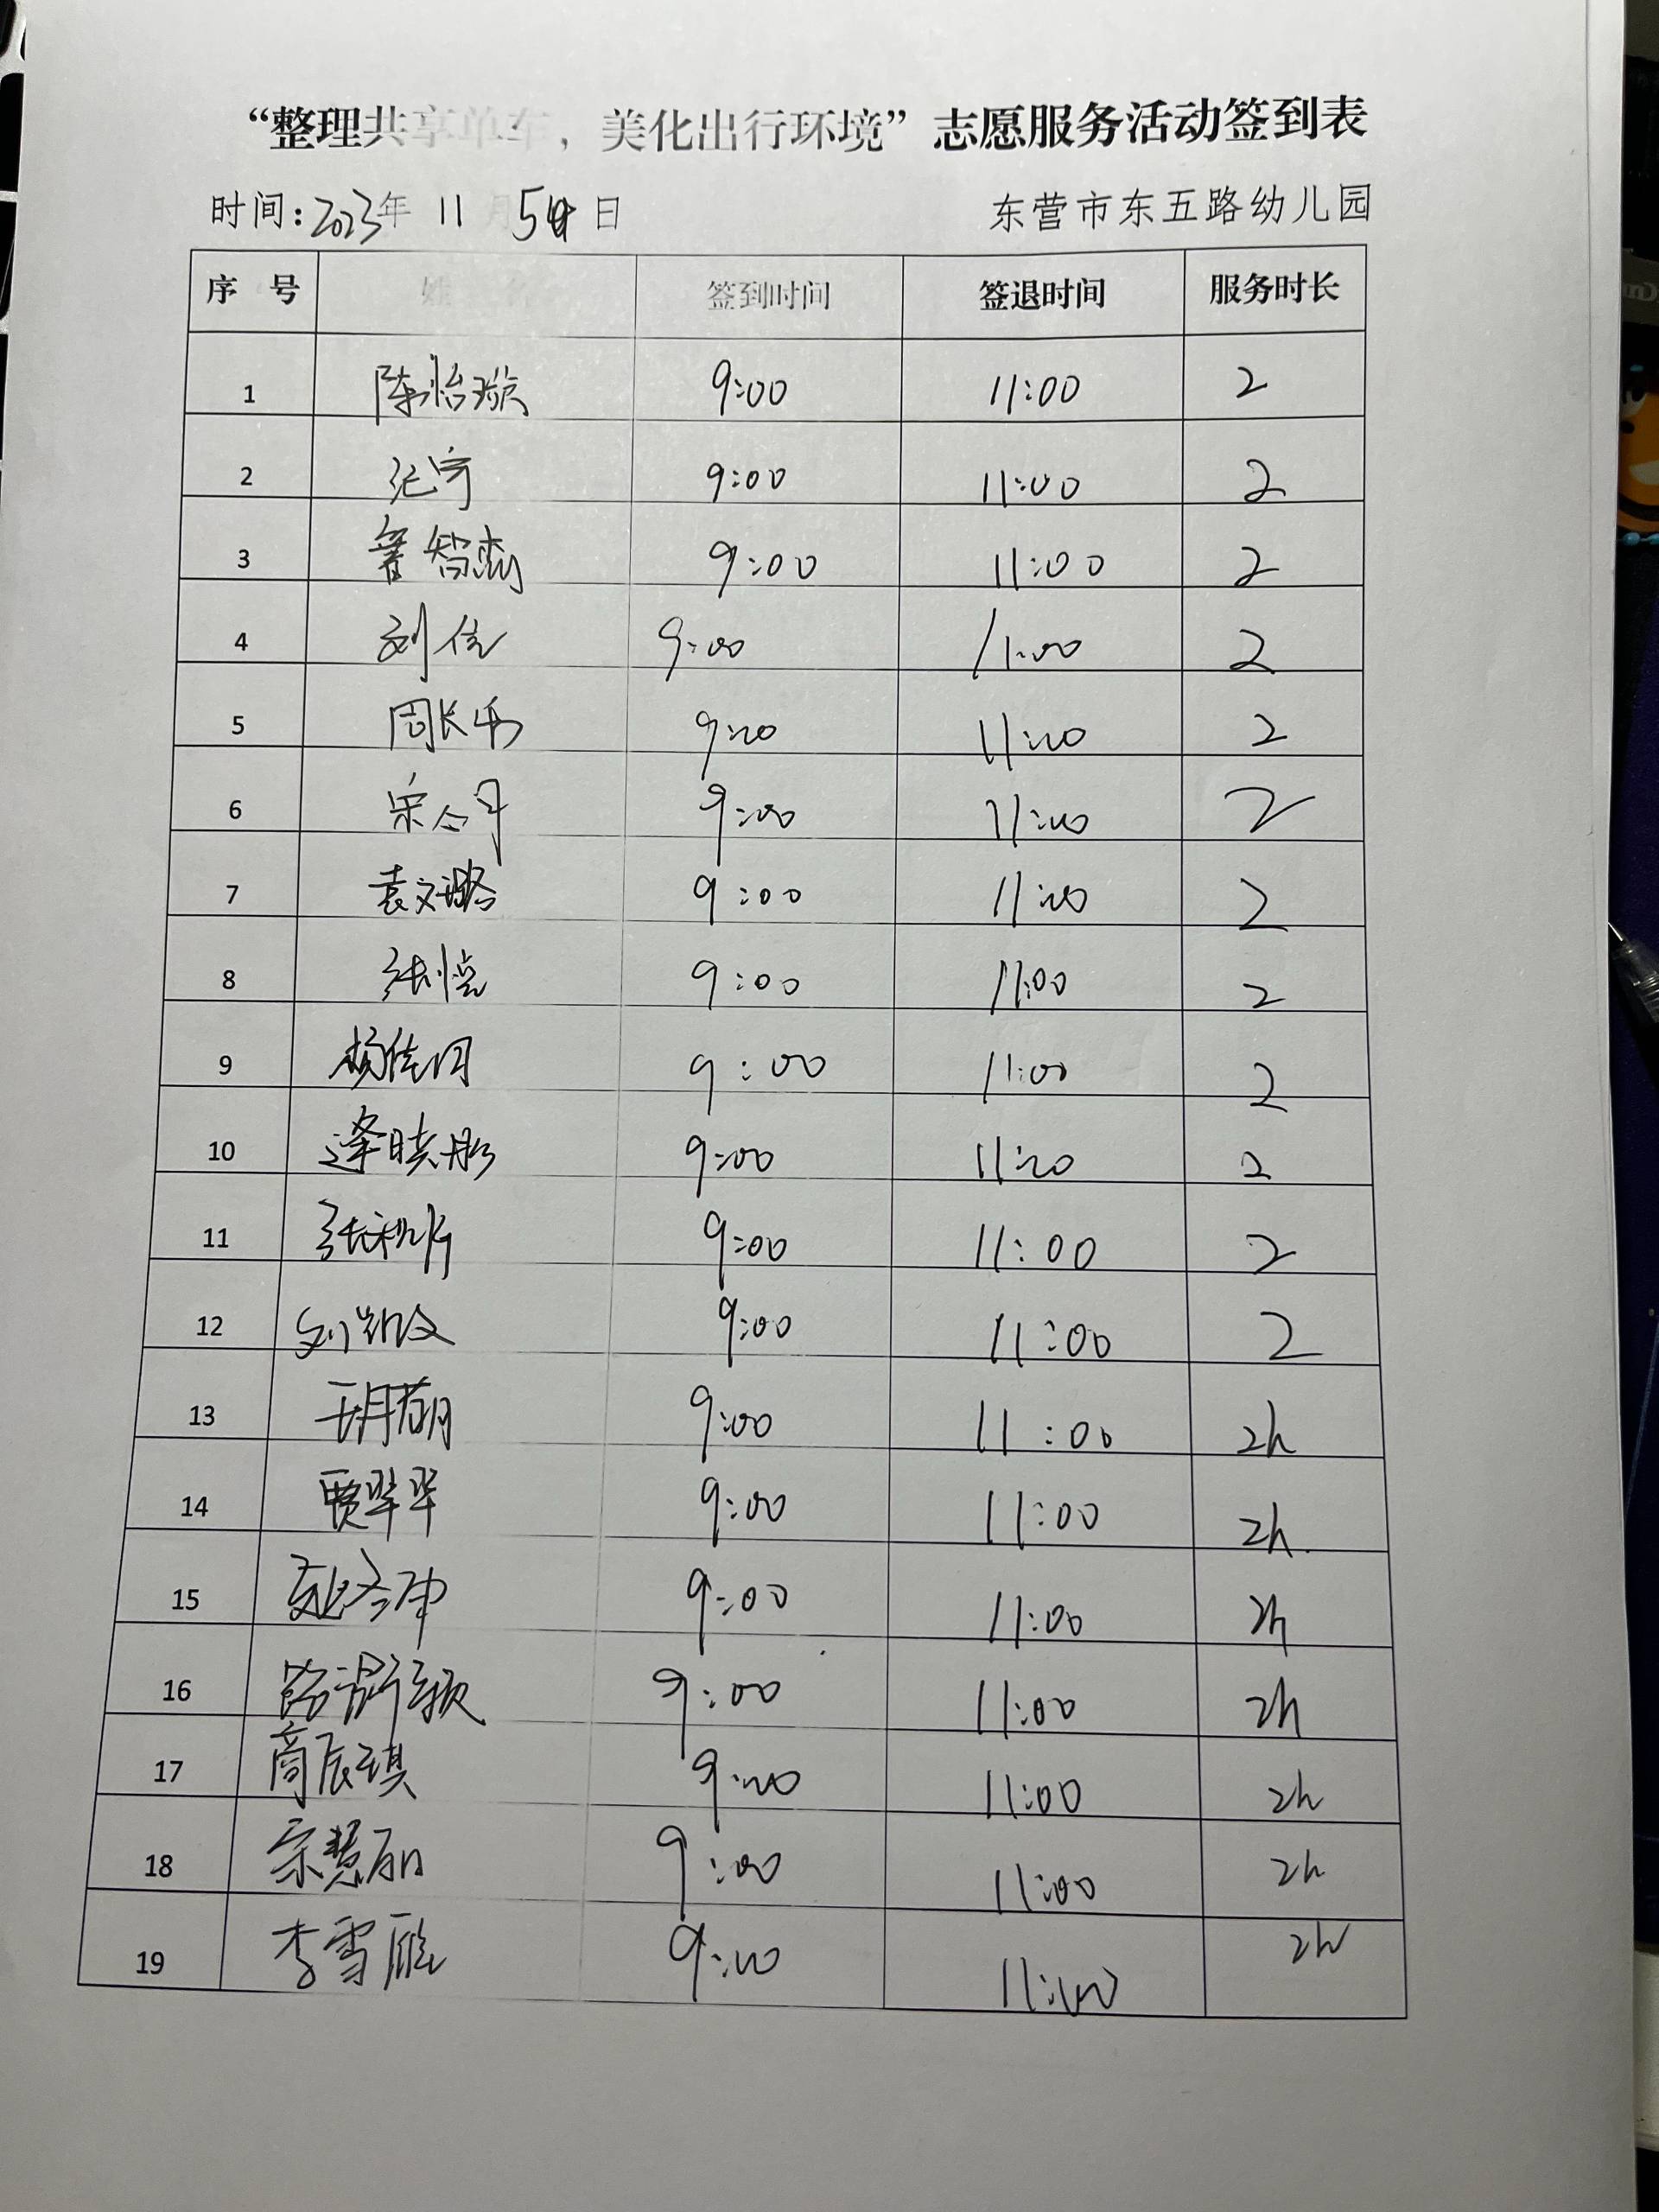 “整理共享单车，美化出行环境”志愿服务活动签到表
时间：2023年 11 月 5 日 东营市东五路幼儿园
序 号 姓 名 签到时间 签退时间 服务时长
1 陈怡璇 9:00 11:00 2
2 纪宇 9:00 11:00 2
3 智 9:00 11:00 2
4 刘佳 9:00 11:00 2
5 周长 9:00 11:00 2
6 宋 9:00 11:00 2
7 袁文璐 9:00 11:00 2
8 张 9:00 11:00 2
9 杨佳 9:00 11:00 2
10 逄晓彤 9:00 11:00 2
11 张 9:00 11:00 2
12 刘凯文 9:00 11:00 2
13 9:00 11:00 2h
14 贾翠翠 9:00 11:00 2h.
15 9:00 11:00 2h
16 路 9:00 11:00 2h
17 商辰琪 9:00 11:00 2h
18 宗慧丽 9:00 11:00 2h
19 李雪 9:00 11:00 2h